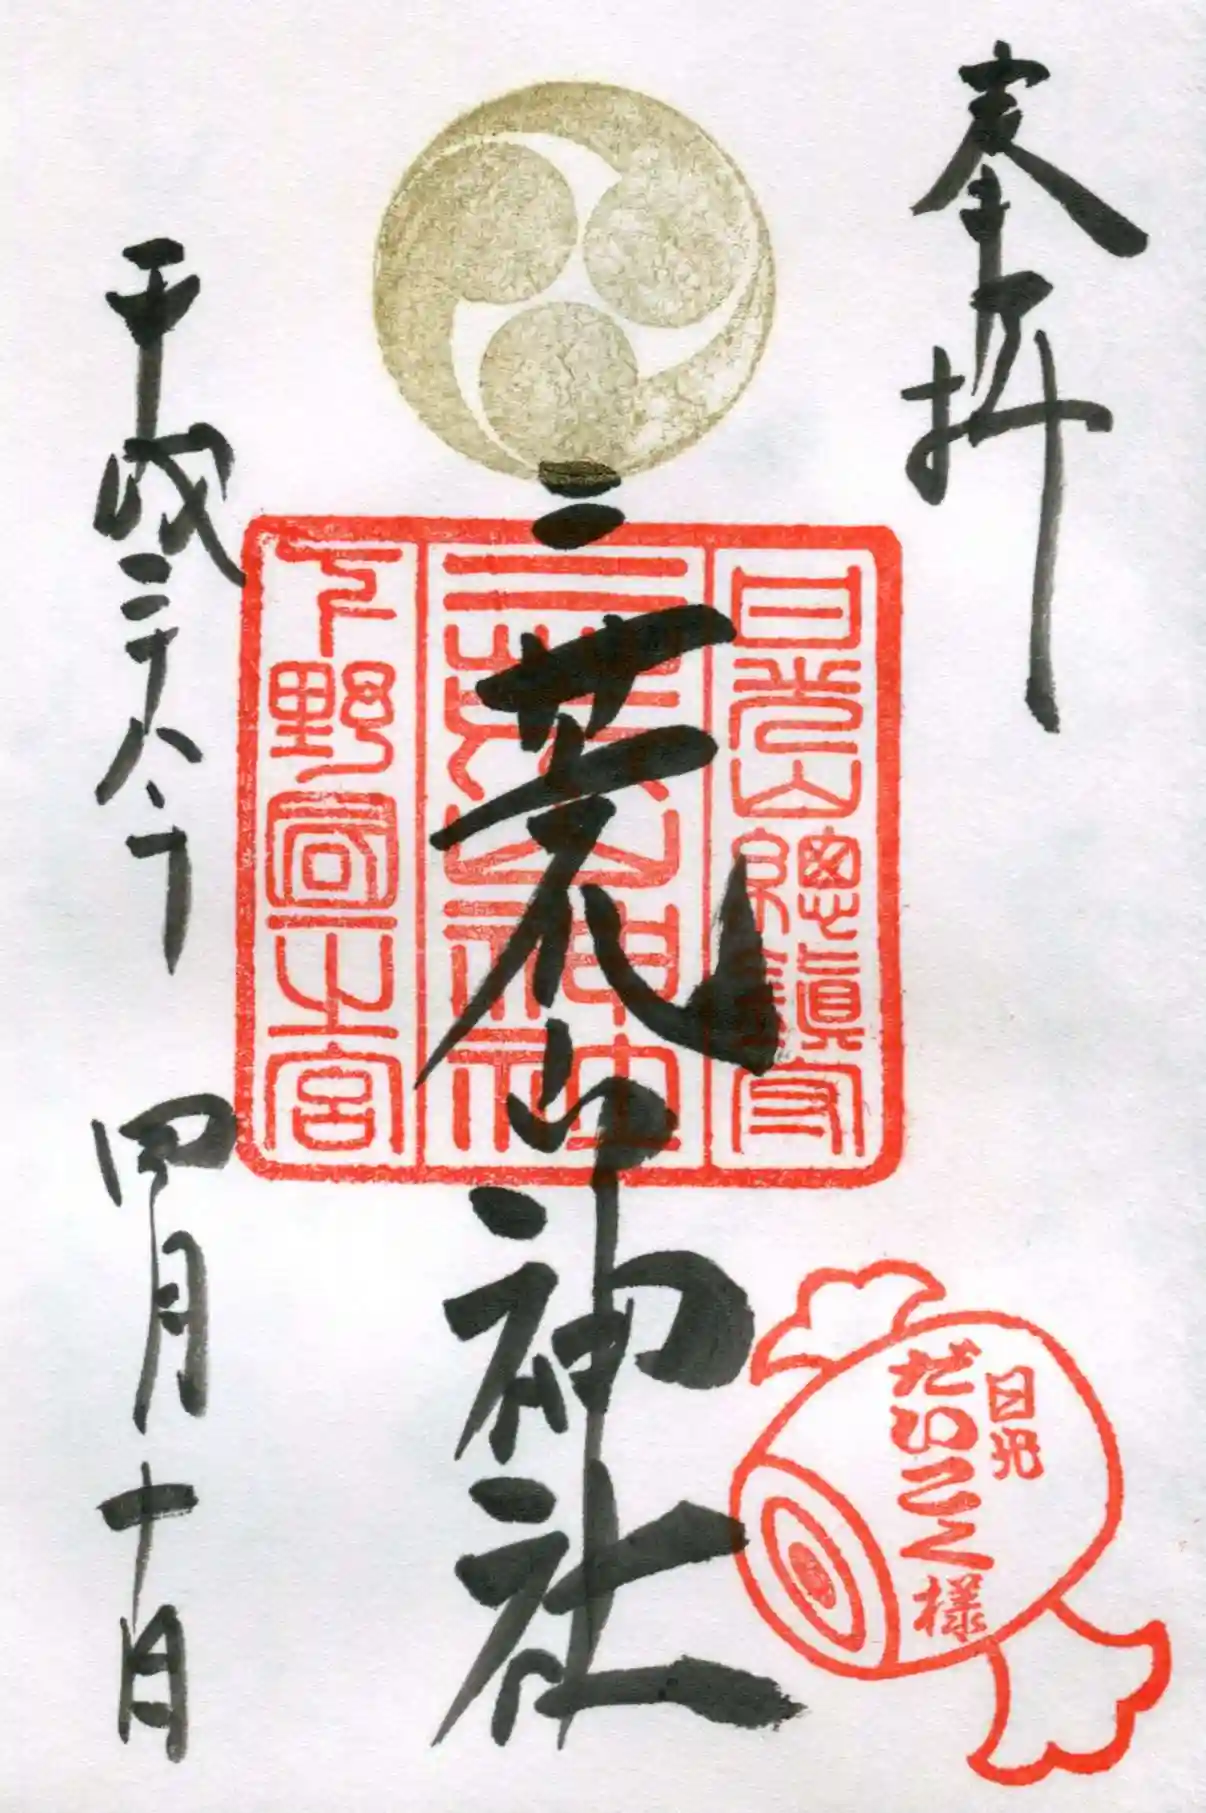 奉拝
二荒山神社
日光山總鎮守
二荒山神社
下野國一之宮
平成二十八年
四月十日
日光
だいこく様